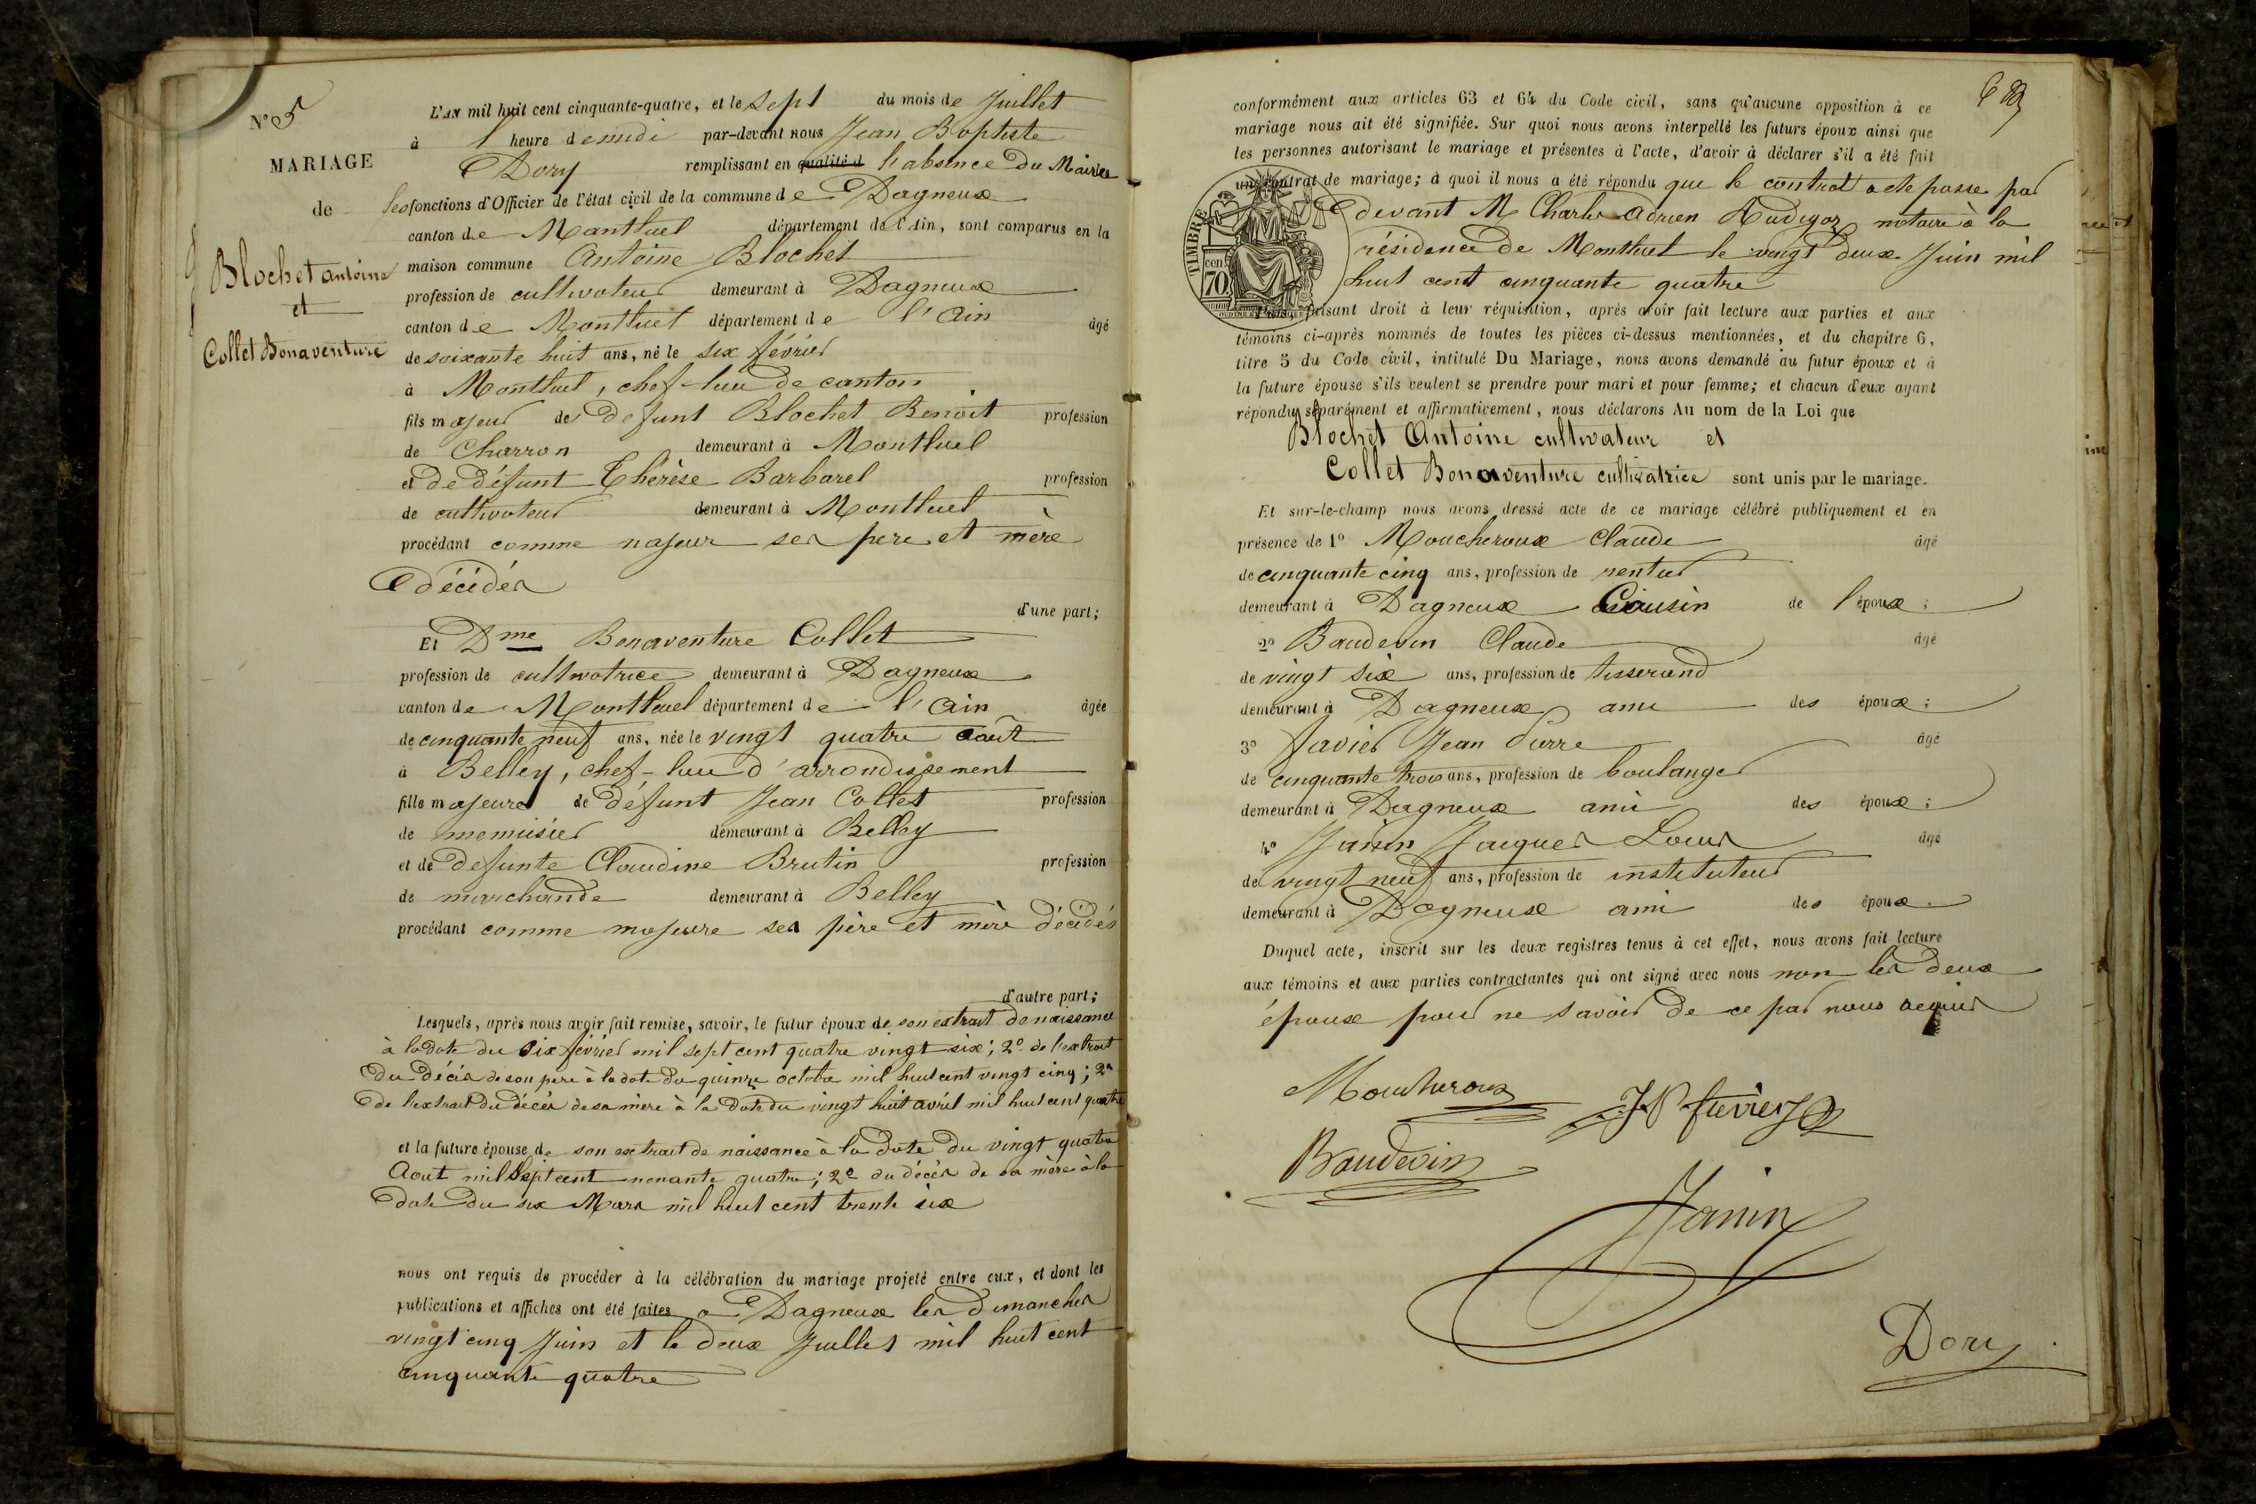 N° 5
MARIAGE
de
Blochet Antoine
et
Collet Bonaventure
L'AN mil huit cent cinquante-quatre, et le sept du mois de Juillet
à 1 heure demidi par-devant nous Jean Baptiste
Dory remplissant en qualité d l'absence du Maire
les fonctions d'Officier de l'état civil de la commune de Dagneux
canton de Montluel département de l'Ain, sont comparus en la
maison commune Antoine Blochet
profession de cultivateur demeurant à Dagneux
canton de Montluel département de l'Ain âgé
de soixante huit ans, né le six février
à Montluel, chef-lieu de canton
fils majeur de défunt Blochet Benoit profession
de Charron demeurant à Montluel
et de défunt Thérèse Barbarel profession
de cultivateur demeurant à Montluel
procédant comme majeur ses père et mère
décédés
d'une part;
Et Dme Bonaventure Collet
profession de cultivatrice demeurant à Dagneux
canton de Montluel département de l'Ain âgée
de cinquante neuf ans, née le vingt quatre août
à Belley, chef-lieu d'arrondissement
fille majeure de défunt Jean Collet profession
de menuisier demeurant à Belley
et de defunte Claudine Brutin profession
de marchande demeurant à Belley
procédant comme majeure ses père et mère décédés
d'autre part;
Lesquels, après nous avoir fait remise, savoir, le futur époux de son extrait de naissance
à la date du six février mil sept cent quatre vingt six; 2° de l'extrait
du décès de son père à la date du quinze octobre mil huit cent vingt cinq; 2°
de l'extrait du décès de sa mère à la date du vingt huit avril mil huit cent quatre
et la future épouse de son extrait de naissance à la date du vingt quatre
Aout mil sept cent nonante quatre; 2° du décès de sa mère à la
date du six Mars mil huit cent trente six
nous ont requis de procéder à la célébration du mariage projeté entre eux, et dont les
publications et affiches ont été faites a Dagneux les dimanches
vingt cinq Juin et le deux Juillet mil huit cent
cinquante quatre
conformément aux articles 63 et 64 du Code civil, sans qu'aucune opposition à ce
mariage nous ait été signifiée. Sur quoi nous avons interpellé les futurs époux ainsi que
les personnes autorisant le mariage et présentes à l'acte, d'avoir à déclarer s'il a été fait
un contrat de mariage; à quoi il nous a été répondu que le contrat a ete passe par
devant M Charles Adrien Audigoz notaire à la
résidence de Montluel le vingt deux Juin mil
huit cent cinquante quatre
TIMBRE
70 cen
faisant droit à leur réquisition, après avoir fait lecture aux parties et aux
témoins ci-après nommés de toutes les pièces ci-dessus mentionnées, et du chapitre 6,
titre 5 du Code civil, intitulé Du Mariage, nous avons demandé au futur époux et à
la future épouse s'ils veulent se prendre pour mari et pour femme; et chacun d'eux ayant
répondu séparément et affirmativement, nous déclarons Au nom de la Loi que
Blochet Antoine cultivateur et
Collet Bonaventure cultivatrice sont unis par le mariage.
Et sur-le-champ nous avons dressé acte de ce mariage célébré publiquement et en
présence de 1° Moucheroux Claude âgé
de cinquante cinq ans, profession de rentier
demeurant à Dagneux Cousin de l'époux;
2° Baudevin Claude âgé
de vingt six ans, profession de tisserand
demeurant à Dagneux ami des époux;
3° favier Jean Pierre âgé
de cinquante trois ans, profession de boulanger
demeurant à Dagneux ami des époux;
4° Janin Jacques Louis âgé
de vingt neuf ans, profession de instituteur
demeurant à Dagneux ami des époux
Duquel acte, inscrit sur les deux registres tenus à cet effet, nous avons fait lecture
aux témoins et aux parties contractantes qui ont signé avec nous non les deux
époux pour ne savoir de ce par nous requis
Moucheroux
JP favier
Baudevin
Janin
Dory